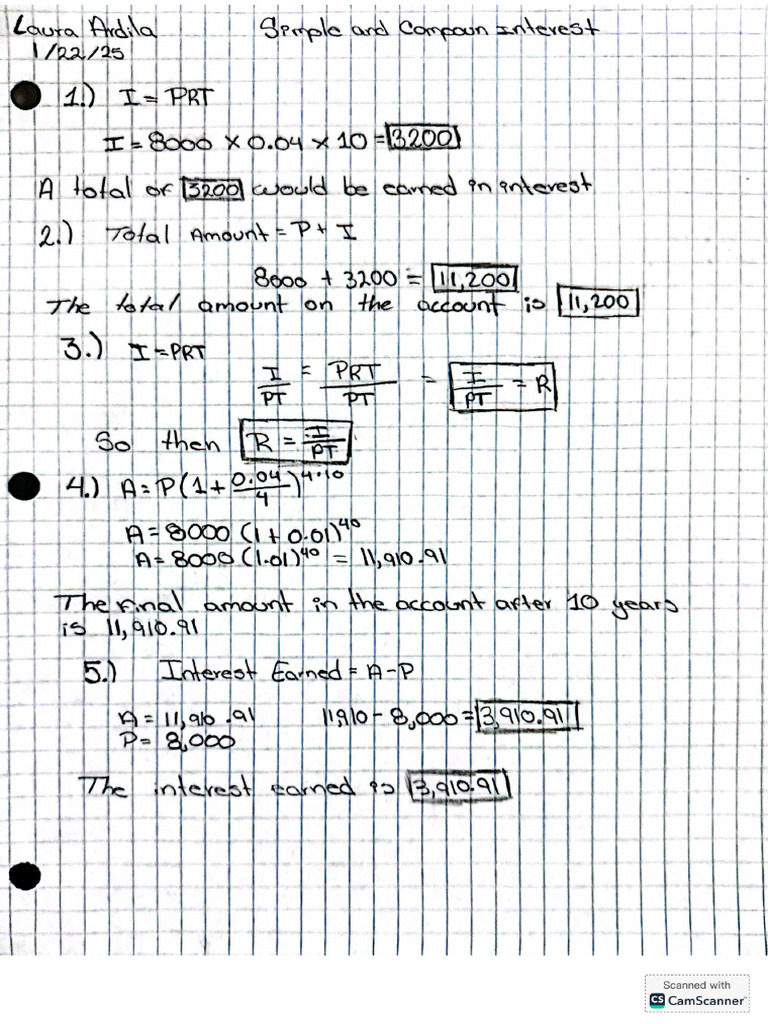 Laura Ardila Simple and Compoun Interest
1/22/25
1.) I = PRT
I = 8000 x 0.04 x 10 = 3200
A total of 3200 would be earned in interest
2.) Total Amount = P + I
8000 + 3200 = 11,200
The total amount on the account is 11,200
3.) I = PRT
I/PT = PRT/PT = I/PT = R
So then R = I/PT
4.) A = P(1 + 0.04/4)^4·10
A = 8000 (1 + 0.01)^40
A = 8000 (1.01)^40 = 11,910.91
The final amount in the account after 10 years
is 11,910.91
5.) Interest Earned = A - P
A = 11,910.91 11,910 - 8,000 = 3,910.91
P = 8,000
The interest earned is 3,910.91
Scanned with
CS CamScanner